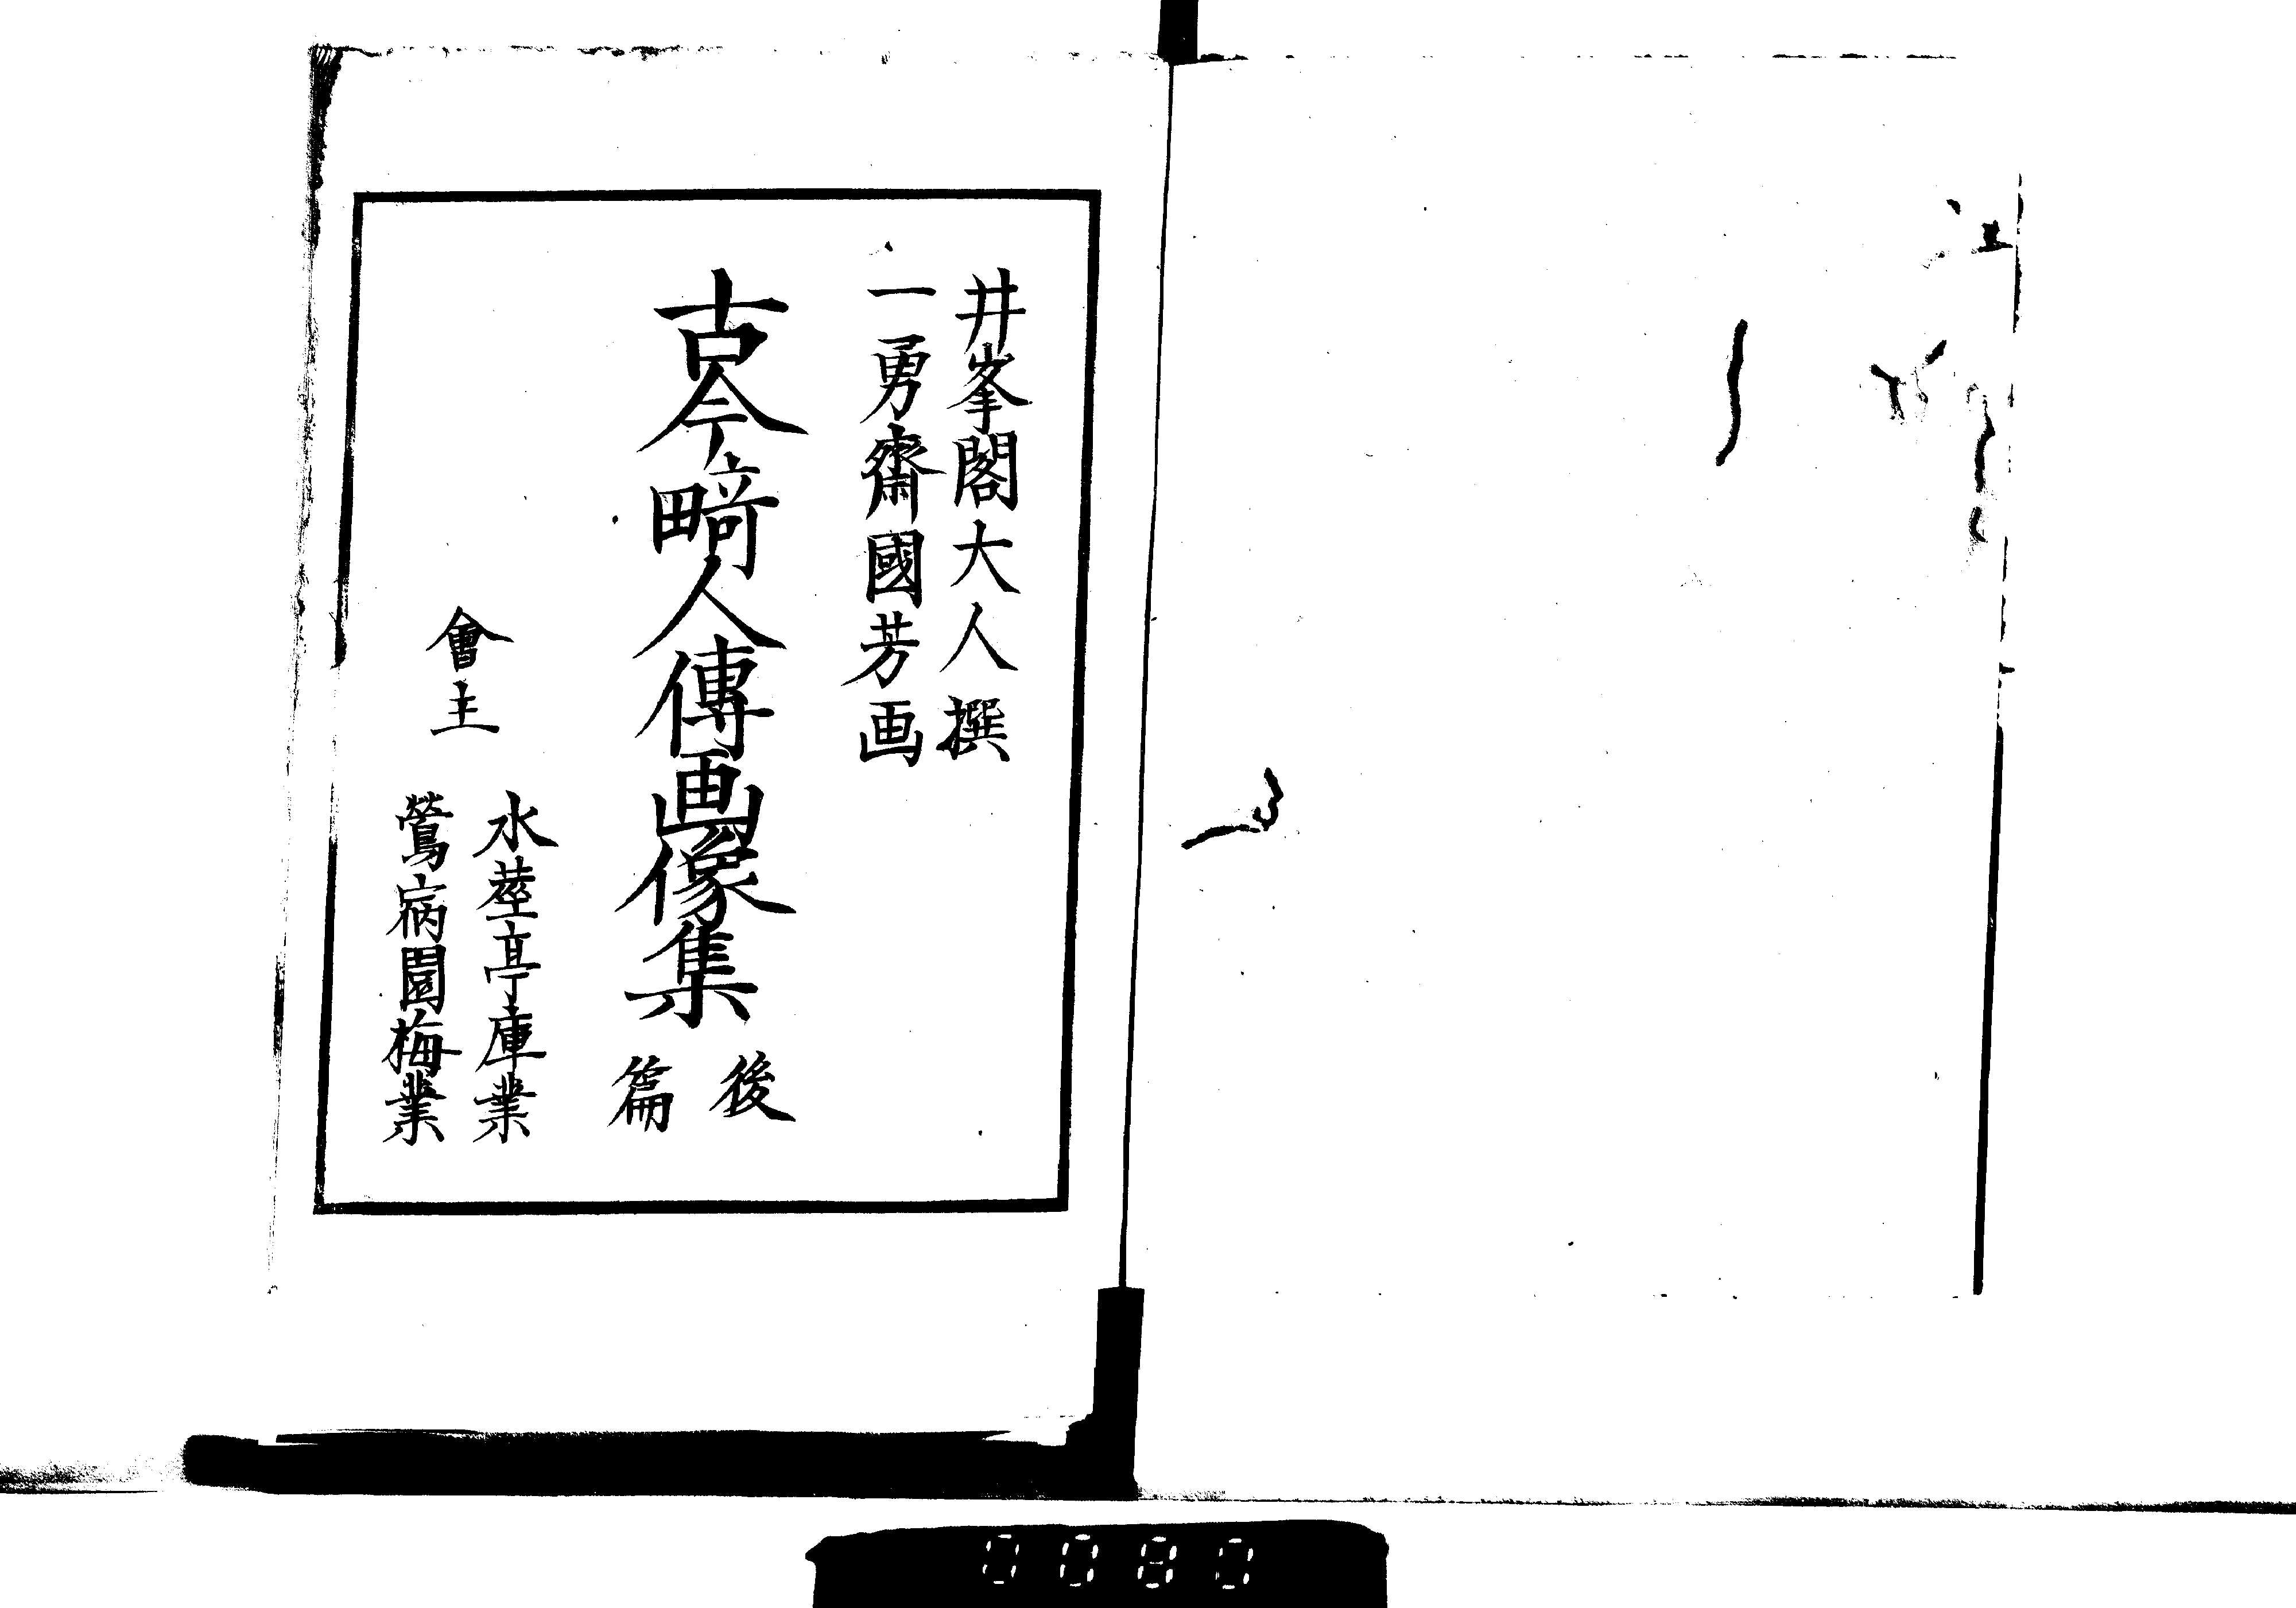 井峯閣大人撰
一勇齋國芳画
古今畸人傳画像集
後篇
會主
水蓙亭庫業
鶯病園梅業
0080